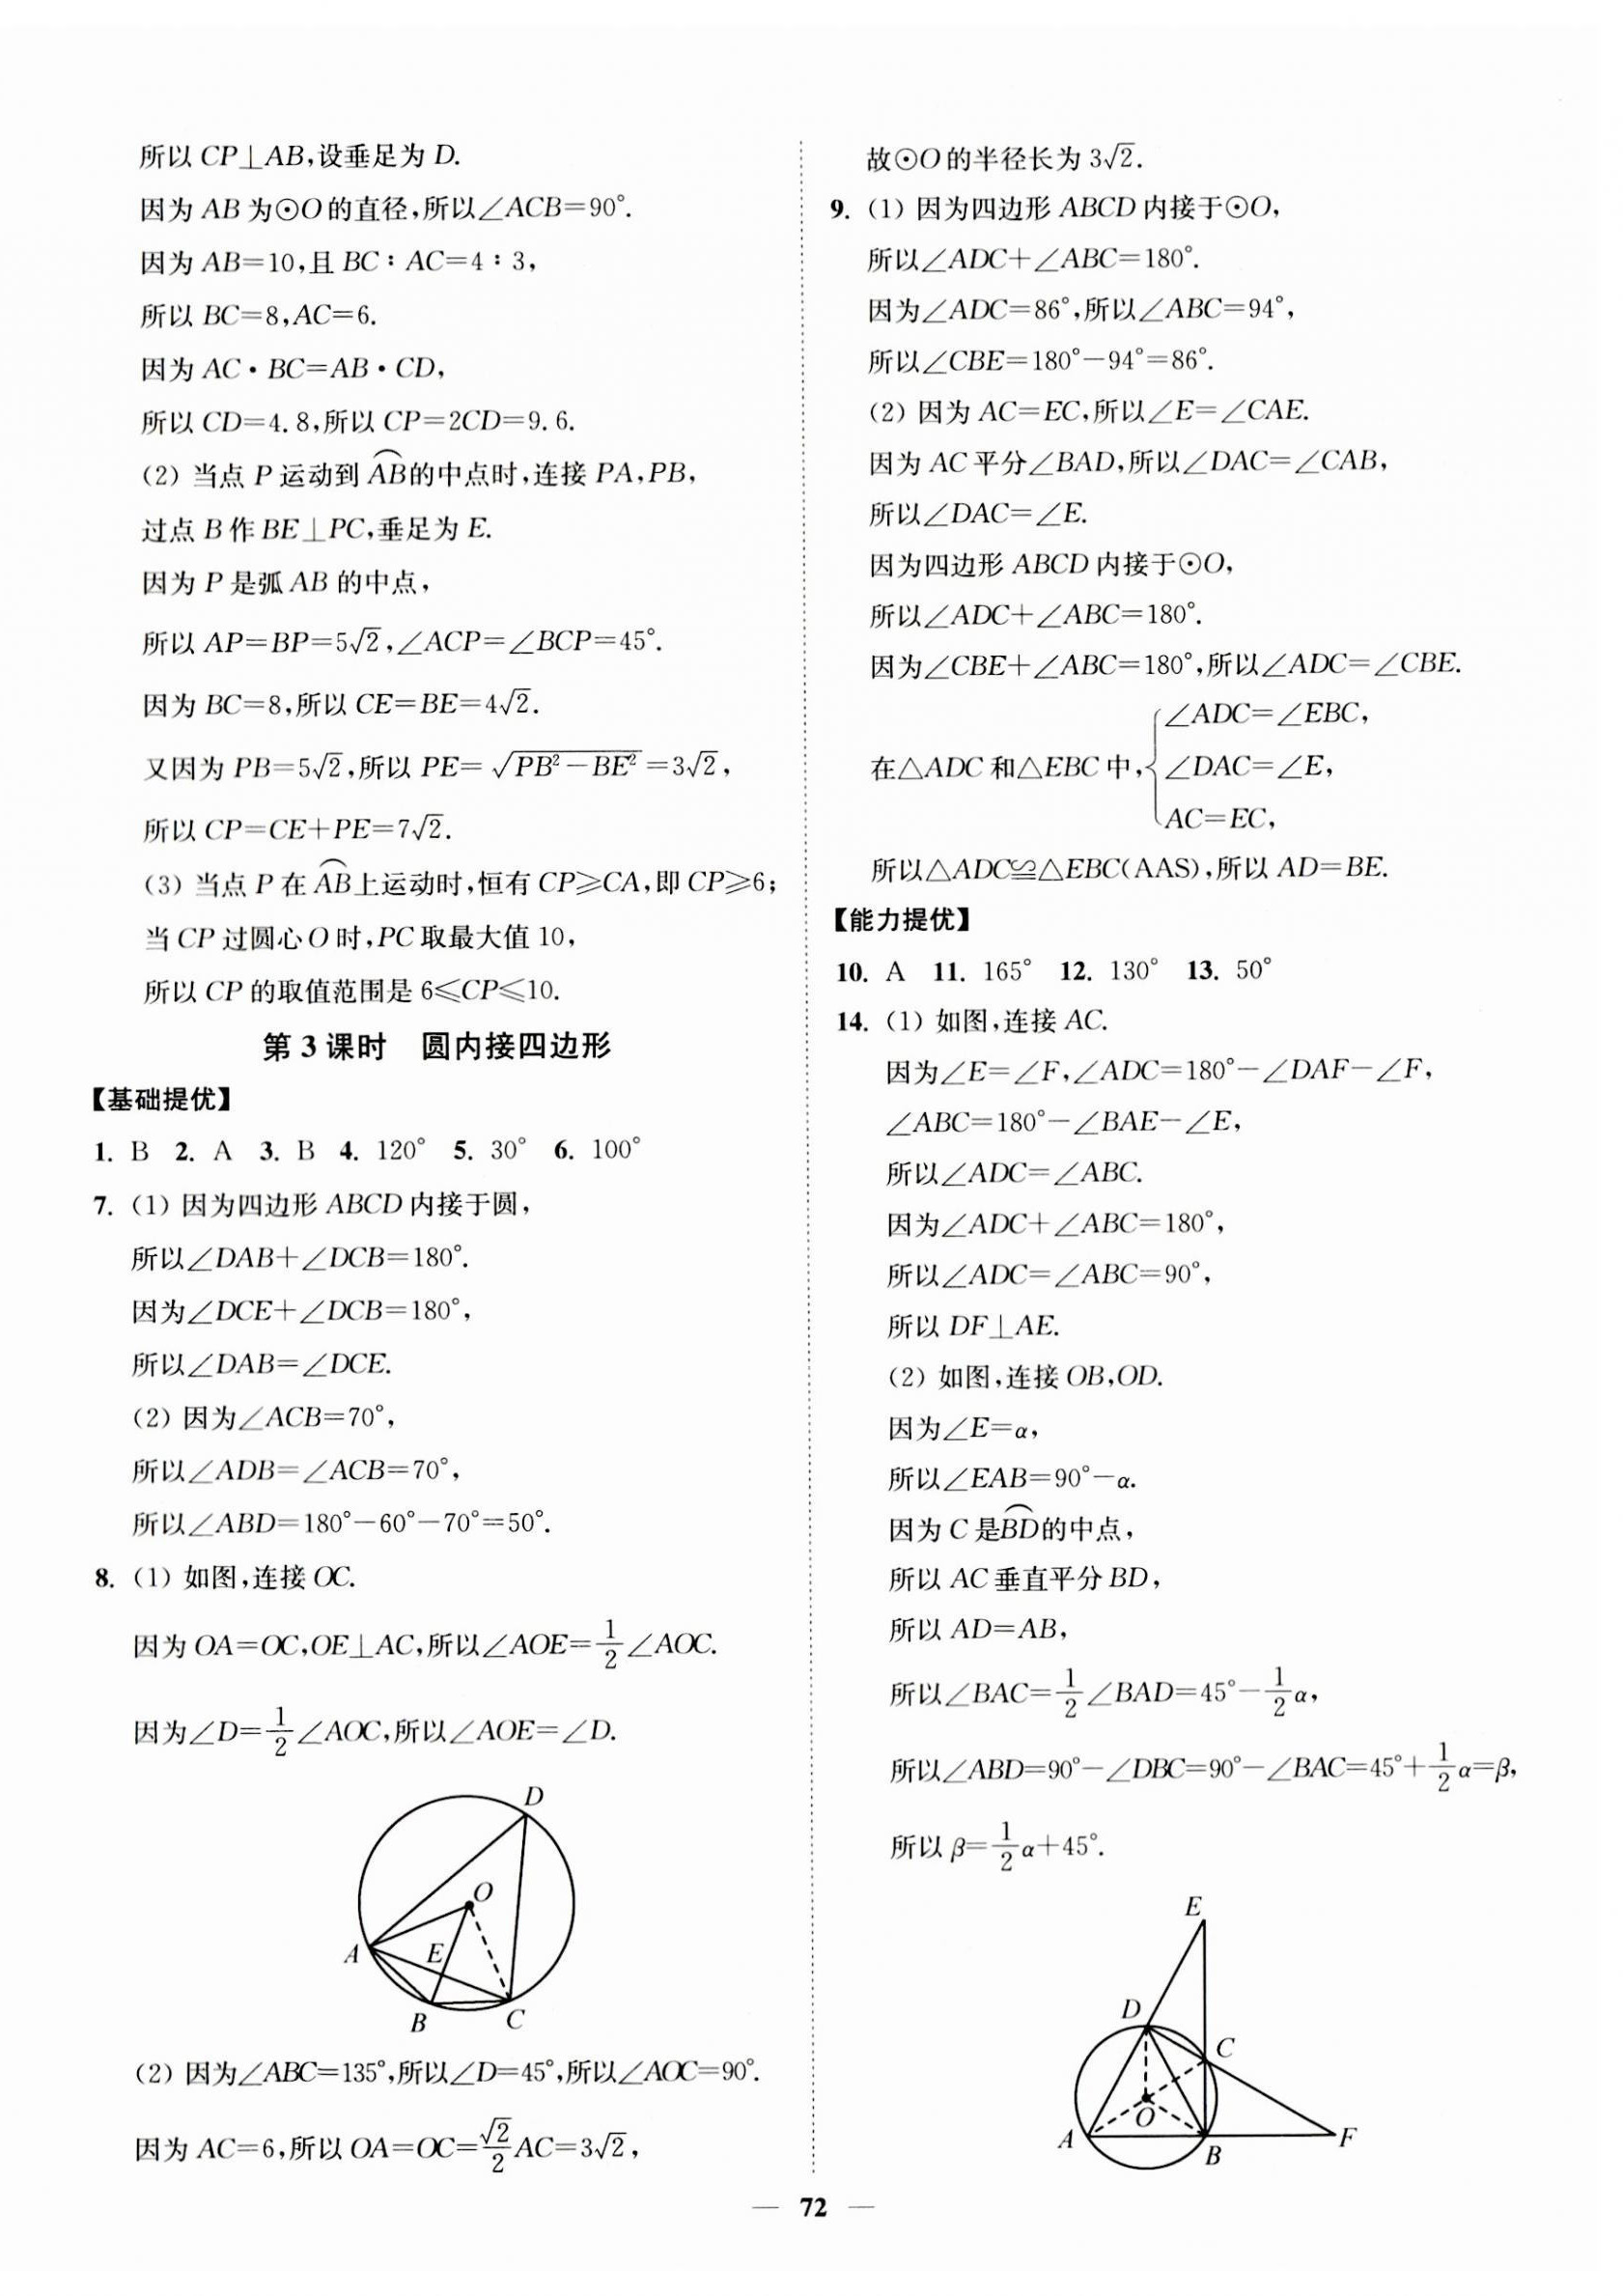 所以 CP⊥AB,设垂足为 D.
因为 AB 为⊙O 的直径,所以∠ACB=90°.
因为 AB=10,且 BC∶AC=4∶3,
所以 BC=8,AC=6.
因为 AC·BC=AB·CD,
所以 CD=4.8,所以 CP=2CD=9.6.
(2) 当点 P 运动到 A͡B的中点时,连接 PA,PB,
过点 B 作 BE⊥PC,垂足为 E.
因为 P 是弧 AB 的中点,
所以 AP=BP=5√2,∠ACP=∠BCP=45°.
因为 BC=8,所以 CE=BE=4√2.
又因为 PB=5√2,所以 PE=√(PB²-BE²)=3√2,
所以 CP=CE+PE=7√2.
(3) 当点 P 在 A͡B上运动时,恒有 CP≥CA,即 CP≥6;
当 CP 过圆心 O 时,PC 取最大值 10,
所以 CP 的取值范围是 6≤CP≤10.
第 3 课时 圆内接四边形
【基础提优】
1. B 2. A 3. B 4. 120° 5. 30° 6. 100°
7. (1) 因为四边形 ABCD 内接于圆,
所以∠DAB+∠DCB=180°.
因为∠DCE+∠DCB=180°,
所以∠DAB=∠DCE.
(2) 因为∠ACB=70°,
所以∠ADB=∠ACB=70°,
所以∠ABD=180°-60°-70°=50°.
8. (1) 如图,连接 OC.
因为 OA=OC,OE⊥AC,所以∠AOE=1/2∠AOC.
因为∠D=1/2∠AOC,所以∠AOE=∠D.
D
O
A E
B C
(2) 因为∠ABC=135°,所以∠D=45°,所以∠AOC=90°.
因为 AC=6,所以 OA=OC=√2/2 AC=3√2,
故⊙O 的半径长为 3√2.
9. (1) 因为四边形 ABCD 内接于⊙O,
所以∠ADC+∠ABC=180°.
因为∠ADC=86°,所以∠ABC=94°,
所以∠CBE=180°-94°=86°.
(2) 因为 AC=EC,所以∠E=∠CAE.
因为 AC 平分∠BAD,所以∠DAC=∠CAB,
所以∠DAC=∠E.
因为四边形 ABCD 内接于⊙O,
所以∠ADC+∠ABC=180°.
因为∠CBE+∠ABC=180°,所以∠ADC=∠CBE.
∠ADC=∠EBC,
在△ADC 和△EBC 中,{∠DAC=∠E,
AC=EC,
所以△ADC≌△EBC(AAS),所以 AD=BE.
【能力提优】
10. A 11. 165° 12. 130° 13. 50°
14. (1) 如图,连接 AC.
因为∠E=∠F,∠ADC=180°-∠DAF-∠F,
∠ABC=180°-∠BAE-∠E,
所以∠ADC=∠ABC.
因为∠ADC+∠ABC=180°,
所以∠ADC=∠ABC=90°,
所以 DF⊥AE.
(2) 如图,连接 OB,OD.
因为∠E=α,
所以∠EAB=90°-α.
因为 C 是B͡D的中点,
所以 AC 垂直平分 BD,
所以 AD=AB,
所以∠BAC=1/2∠BAD=45°-1/2α,
所以∠ABD=90°-∠DBC=90°-∠BAC=45°+1/2α=β,
所以 β=1/2α+45°.
E
D
C
O
A B F
— 72 —